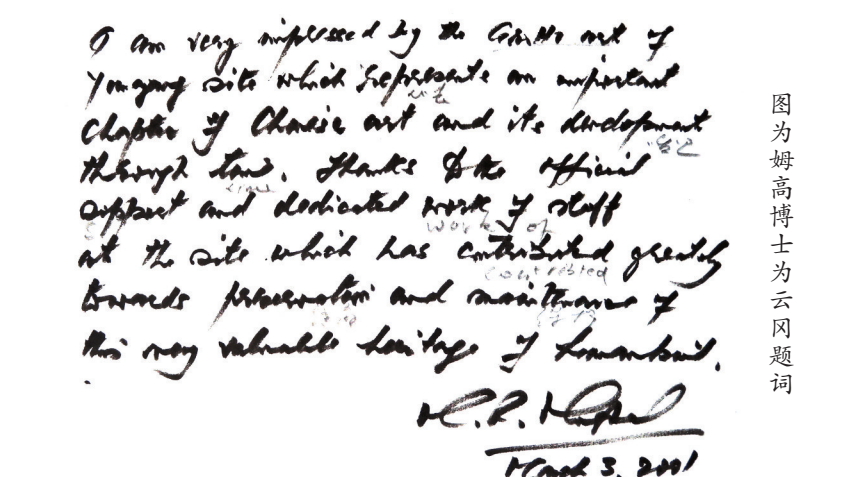 I am very impressed by the Grotto art of
Yungang site which represents an important
Chapter of Chinese art and its development
through time. Thanks to the official
support and dedicated work of staff
at the site which has contributed greatly
towards preservation and maintenance of
this very valuable heritage of humankind.
M. R. Mughal
March 3, 2001
图为姆高博士为云冈题词
work of
contributed